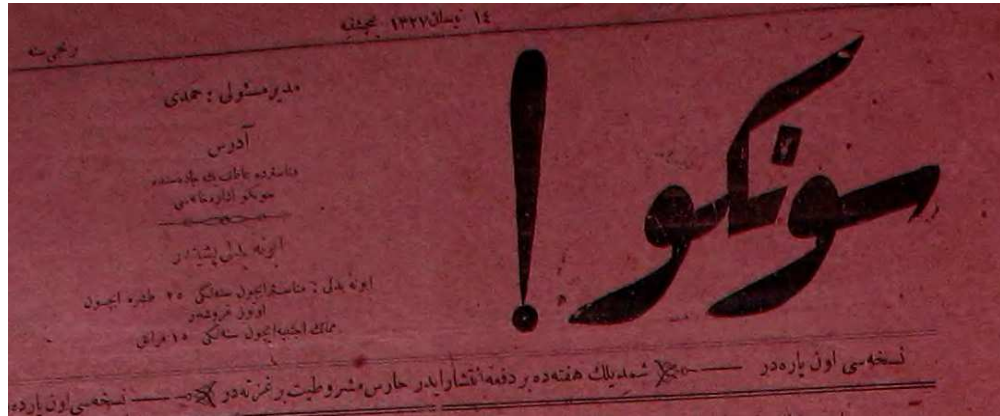 ١٤ نيسان ١٣٢٧ پنجشنبه
برنجی سنه
سونكو !
مدير مسئولی : حمدی
آدرس
مناسترده عاطف بك جاده‌سنده
سونكو اداره‌خانه‌سی
ابونه بدلی پشيندر
ابونه بدلی : مناستر ايچون سنه‌لكی ٢٥ طشره ايچون
اوتوز غروشدر
ممالك اجنبيه ايچون سنه‌لكی ١٥ فرانق
نسخه‌سی اون پاره‌در — شمديلك هفته‌ده بر دفعه انتشار ايدر حارس مشروطيت بر غزته‌در — نسخه‌سی اون پاره‌در